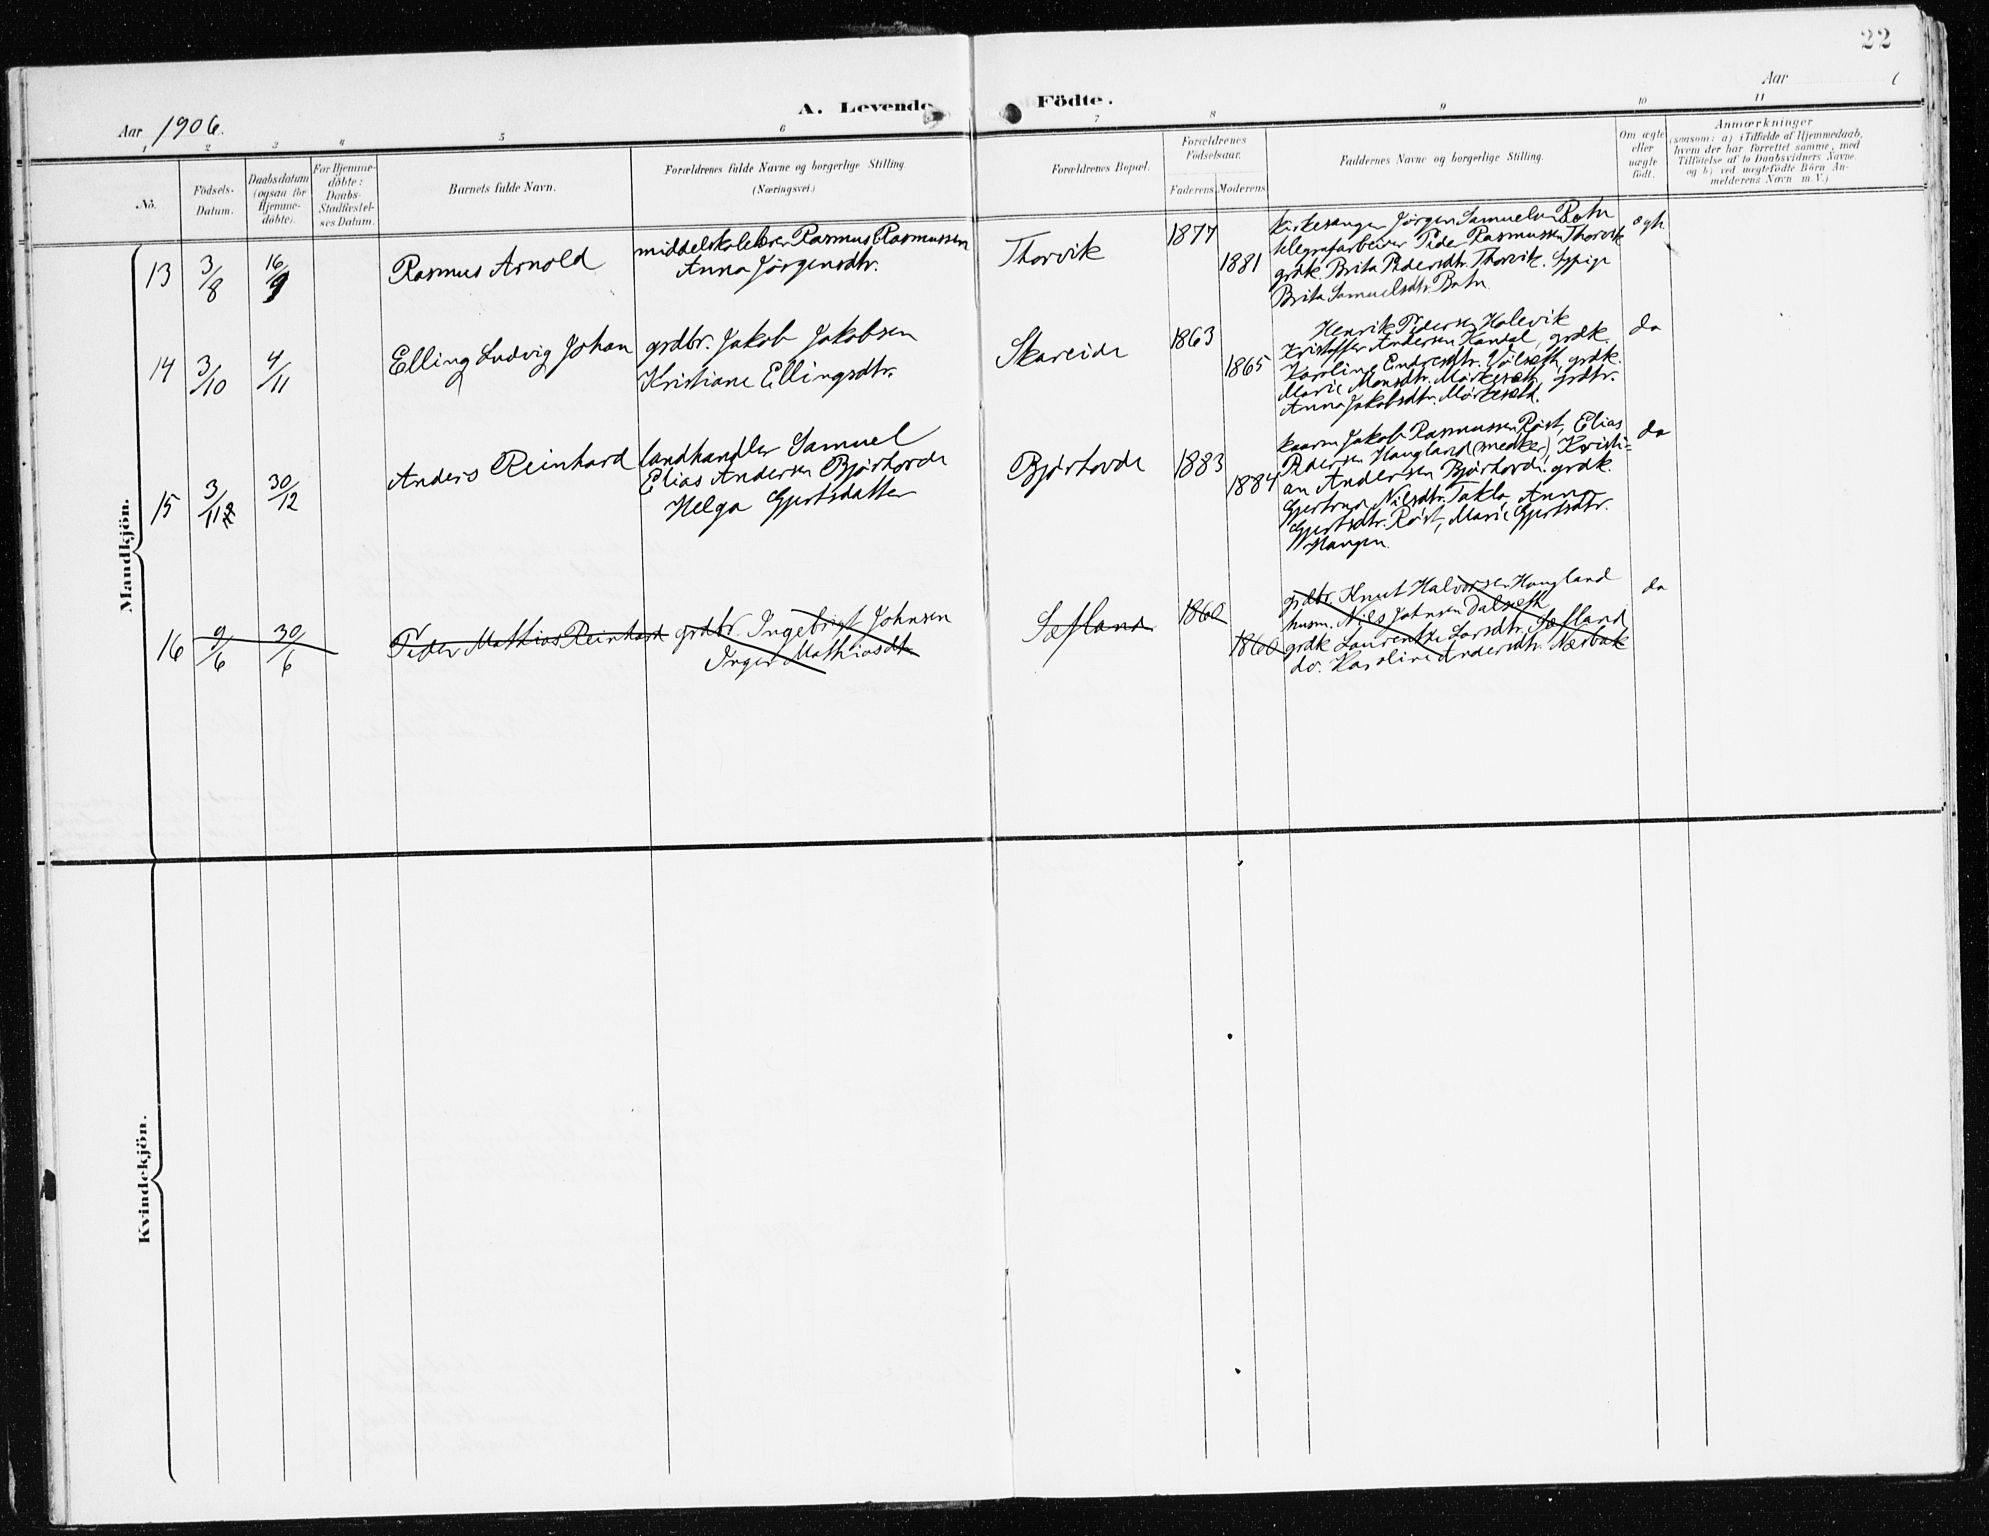 22
Aar
A. Levende Födte.
Aar 1906.
1 2 3 4 5 6 7 8 9 10 11
No.
Födsels-
Datum.
Daabsdatum
(ogsaa for
Hjemme-
döbte).
For Hjemme-
döbte:
Daabs-
Stadfæstel-
ses Datum.
Barnets fulde Navn.
Forældrenes fulde Navne og borgerlige Stilling.
(Næringsvei.)
Forældrenes Bopæl.
Forældrenes
Födselsaar.
Faderens Moderens
Faddernes Navne og borgerlige Stilling.
Om ægte
eller
uægte
født.
Anmærkninger
(saasom: a) i Tilfælde af Hjemmedaab,
hvem der har forrettet samme, med
Tilföielse af to Daabsvidners Navne,
og b) ved uægtefödte Börn An-
melderens Navn m. V.)
Mandkjön.
13 3/8 16/9
Rasmus Arnold
middelskolelærer Rasmus Rasmussen
Anna Jörgensdtr.
Thorvik
1877
1881
kirkesanger Jörgen Samuelsen Botn
telegrafarbeider Peder Rasmussen Thorvik
grdk. Brita Pedersdtr. Thorvik.
Brita Samuelsdtr. Botn
ægte
14 3/10 4/11
Elling Ludvig Johan
grdbr. Jakob Jakobsen
Kristiane Ellingsdtr.
Skareide
1863
1865
Henrik Pedersen Holevik
Kristoffer Andersen Kandal, grdk.
Karoline Endresdtr. grdk.
Marie Monsdtr. Mörkeseth, grdtr.
Anna Jakobsdtr. Mörkeseth.
do
15 3/11 30/12
Anders Reinhard
landhandler Samuel
Elias Andersen Bjørhovde
Helga Gjertsdatter
Bjørhovde
1883
1884
kaarm Jakob Rasmussen Røst, Elias
Pedersen Haugland (snedker), Kristi-
an Andersen Bjørhovde. grdk.
Gjertrud Nilsdtr. Takle, Anna
Gjertsdtr. Røst, Marie Gjertsdtr.
Haugen.
do
16 9/6 30/6
Peder Mathias Reinhard
grdbr. Ingebrigt Johnsen
Inger Mathiasdtr
Sæfland
1860
1860
grdbr Knut Halvorsen Haugland
husm. Nils Johnsen Dalseth
grdk Laurentse Larsdtr. Sæfland
do. Karoline Andersdtr. Næsbak
do
Kvindekjön.